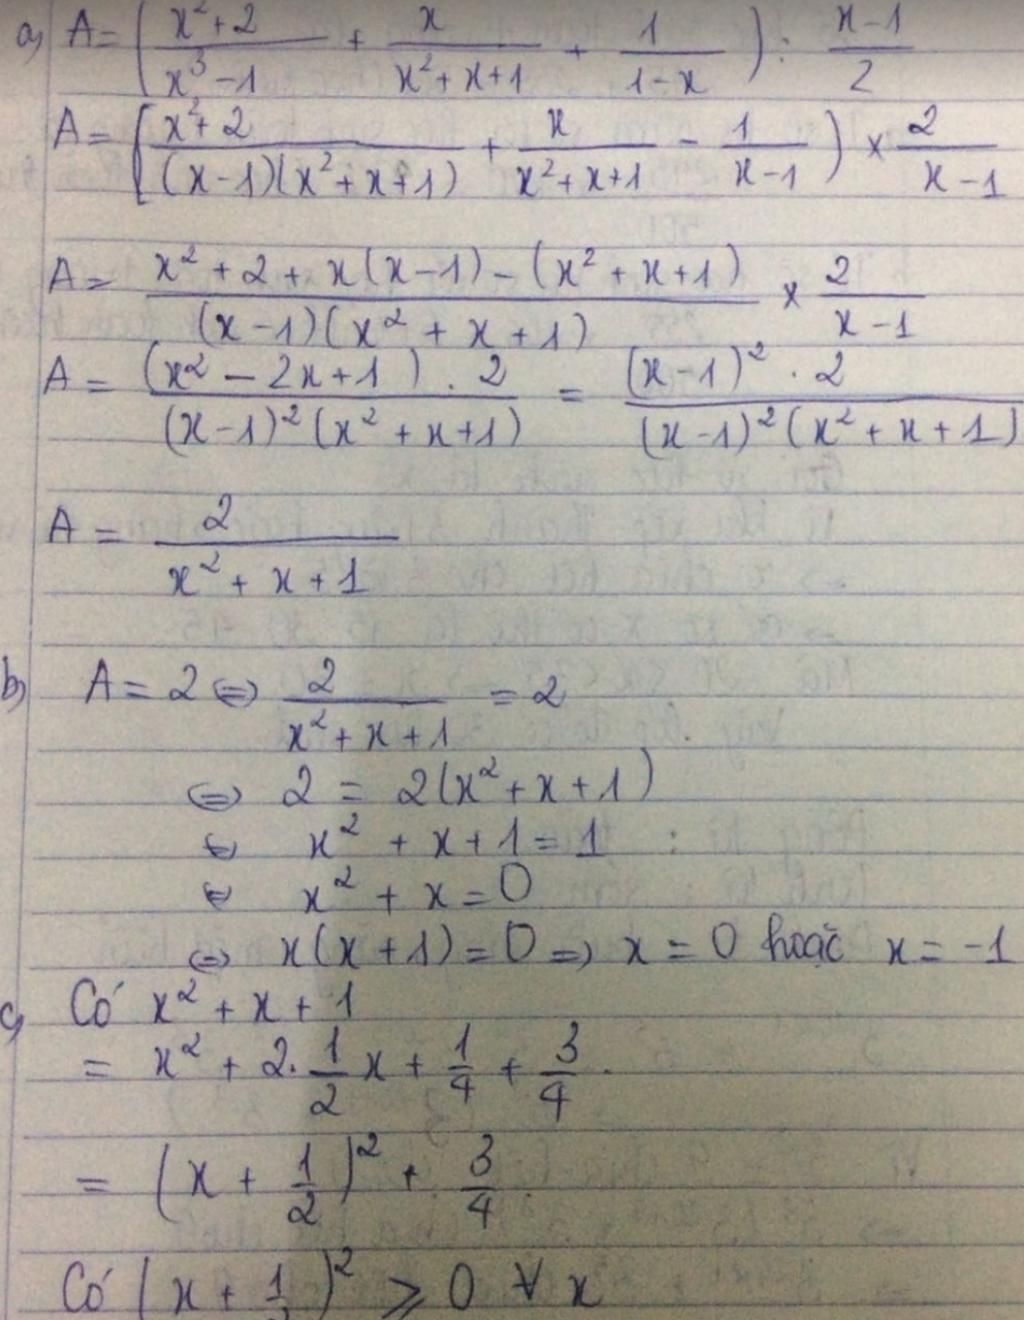 a) A = ( (x² + 2)/(x³ - 1) + x/(x² + x + 1) + 1/(1 - x) ) : (x - 1)/2
A = [ (x² + 2)/((x - 1)(x² + x + 1)) + x/(x² + x + 1) - 1/(x - 1) ) × 2/(x - 1)
A = (x² + 2 + x(x - 1) - (x² + x + 1))/((x - 1)(x² + x + 1)) × 2/(x - 1)
A = ((x² - 2x + 1) . 2)/((x - 1)²(x² + x + 1)) = ((x - 1)² . 2)/((x - 1)²(x² + x + 1))
A = 2/(x² + x + 1)
b) A = 2 ⇔ 2/(x² + x + 1) = 2
⇔ 2 = 2(x² + x + 1)
⇔ x² + x + 1 = 1
⇔ x² + x = 0
⇔ x(x + 1) = 0 ⇒ x = 0 hoặc x = -1
c) Có x² + x + 1
= x² + 2. 1/2 x + 1/4 + 3/4
= (x + 1/2)² + 3/4
Có (x + 1/2)² ⩾ 0 ∀ x